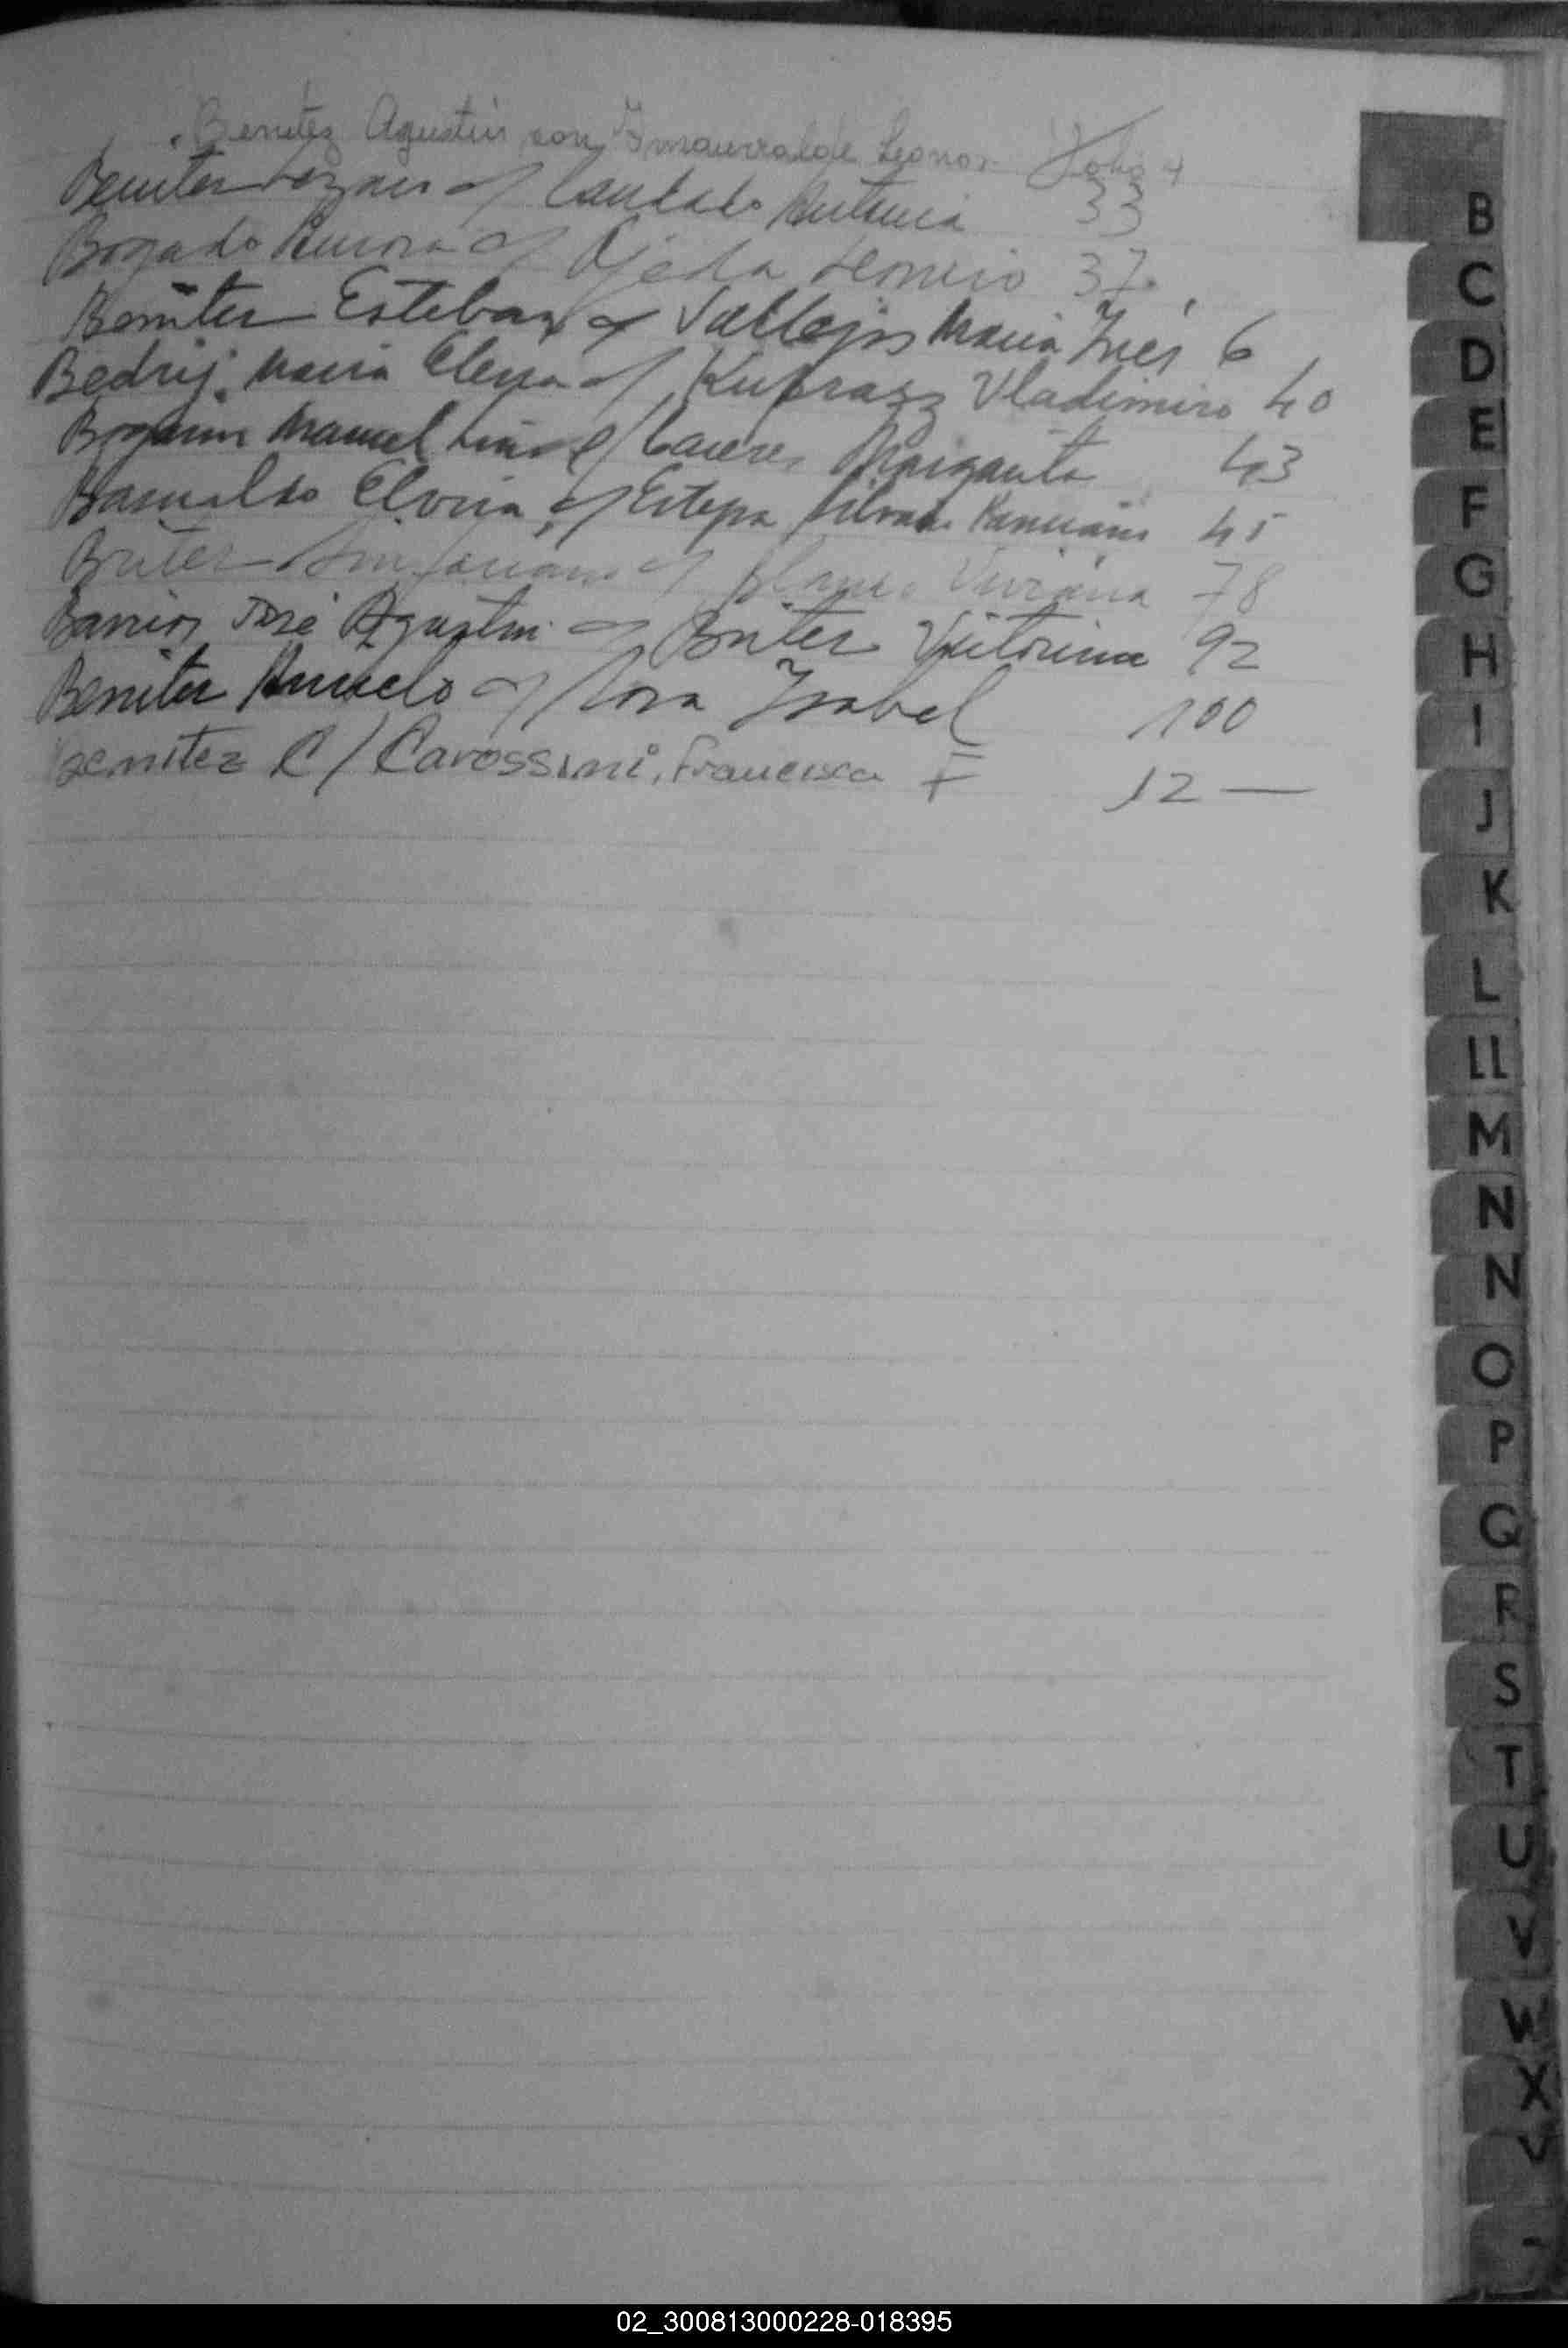 Benitez Agustin con Ymaurralde Leonor Folio 4
Benitez c/ Candado Antonia 33
Bogado Aurora c/ Ojeda 37
Benitez Esteban c/ Vallejos Maria Inés 6
Bedrij Maria Elena c/ Kuprazz Vladimiro 40
Manuel c/ Caceres Margarita 43
Elvira c/ Estepa 45
Britez c/ Blanco Viviana 78
Barrios José Agustin c/ Britez Victorina 92
Benitez c/ Ysabel 100
Benitez C/ Carossini, Francisca F 12 —
B
C
D
E
F
G
H
I
J
K
L
LL
M
N
N
O
P
Q
R
S
T
U
V
W
X
02_300813000228-018395